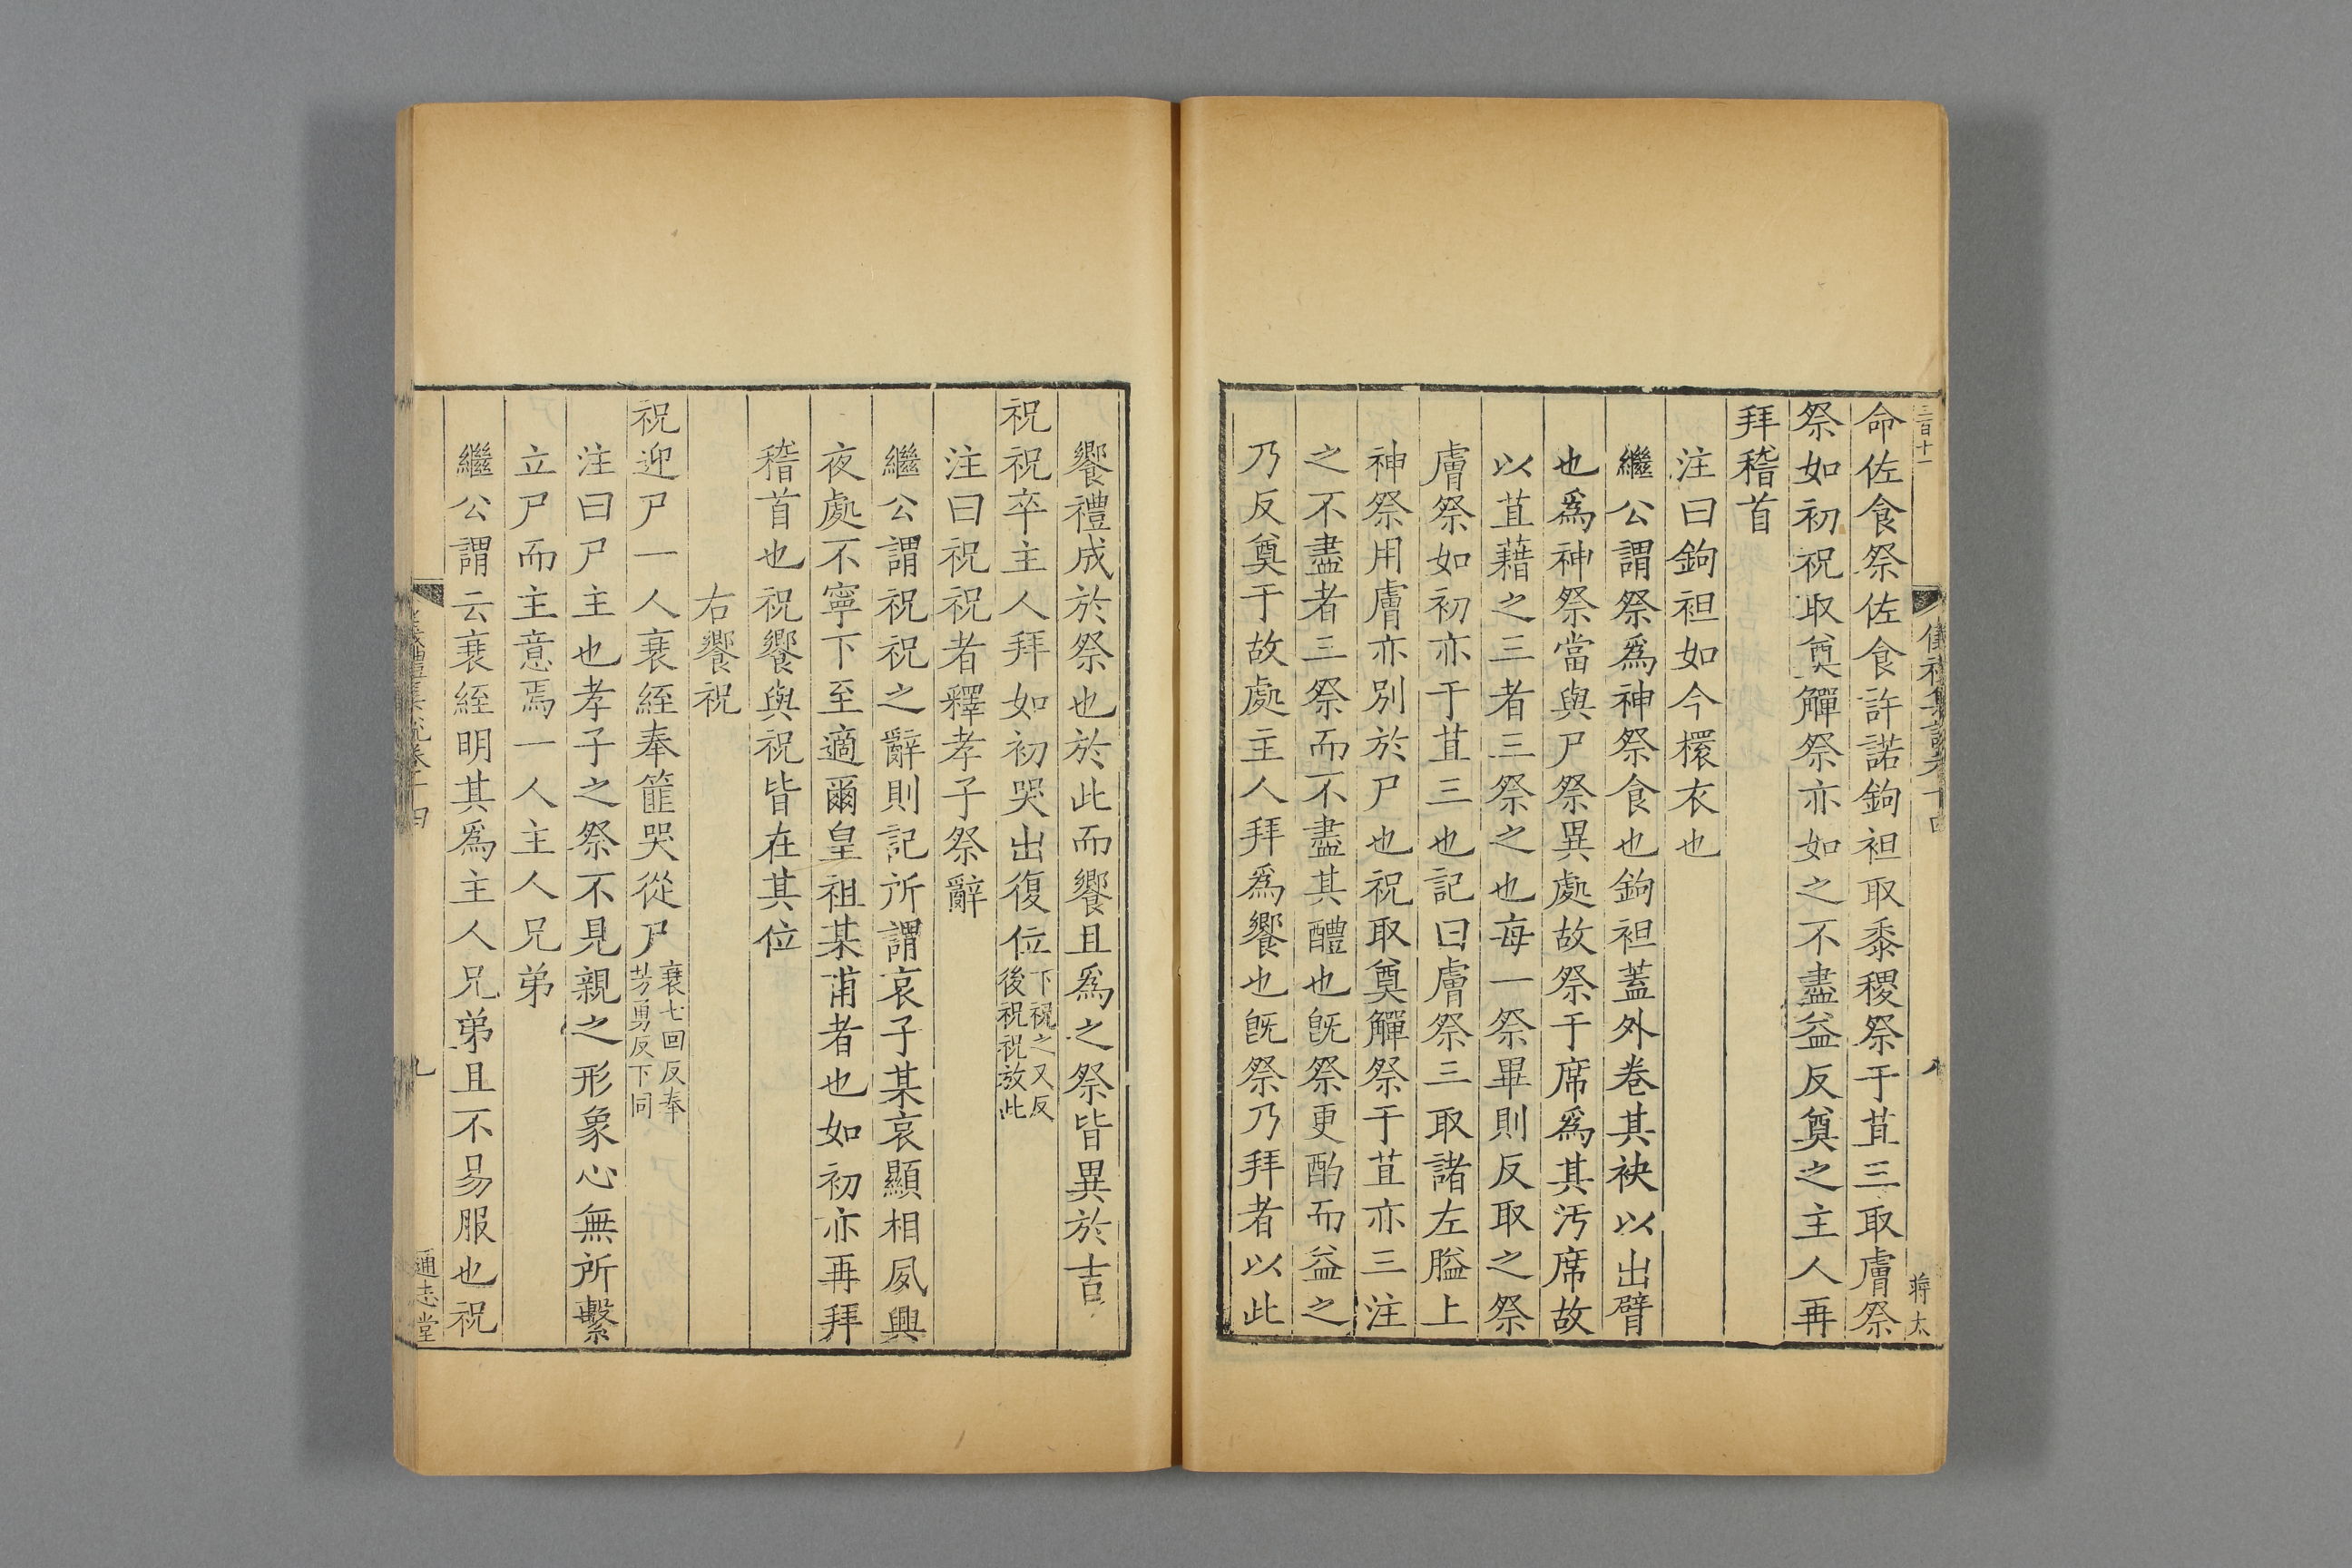 三百十一
儀禮集說卷十四
八
蔣太
命佐食祭佐食許諾鉤袒取黍稷祭于苴三取膚祭
祭如初祝取奠觶祭亦如之不盡益反奠之主人再
拜稽首
注曰鉤袒如今擐衣也
繼公謂祭爲神祭食也鉤袒蓋外卷其袂以出臂
也爲神祭當與尸祭異處故祭于席爲其汚席故
以苴藉之三者三祭之也每一祭畢則反取之祭
膚祭如初亦于苴三也記曰膚祭三取諸左膉上
神祭用膚亦別於尸也祝取奠觶祭于苴亦三注
之不盡者三祭而不盡其醴也旣祭更酌而益之
乃反奠于故處主人拜爲饗也旣祭乃拜者以此
饗禮成於祭也於此而饗且爲之祭皆異於吉
祝祝卒主人拜如初哭出復位下祝之又反
後祝祝放此
注曰祝祝者釋孝子祭辭
繼公謂祝祝之辭則記所謂哀子某哀顯相夙興
夜處不寧下至適爾皇祖某甫者也如初亦再拜
稽首也祝饗與祝皆在其位
右饗祝
祝迎尸一人衰絰奉篚哭從尸衰七回反奉
芳勇反下同
注曰尸主也孝子之祭不見親之形象心無所繫
立尸而主意焉一人主人兄弟
繼公謂云衰絰明其爲主人兄弟且不易服也祝
儀禮集說卷十四
九
通志堂